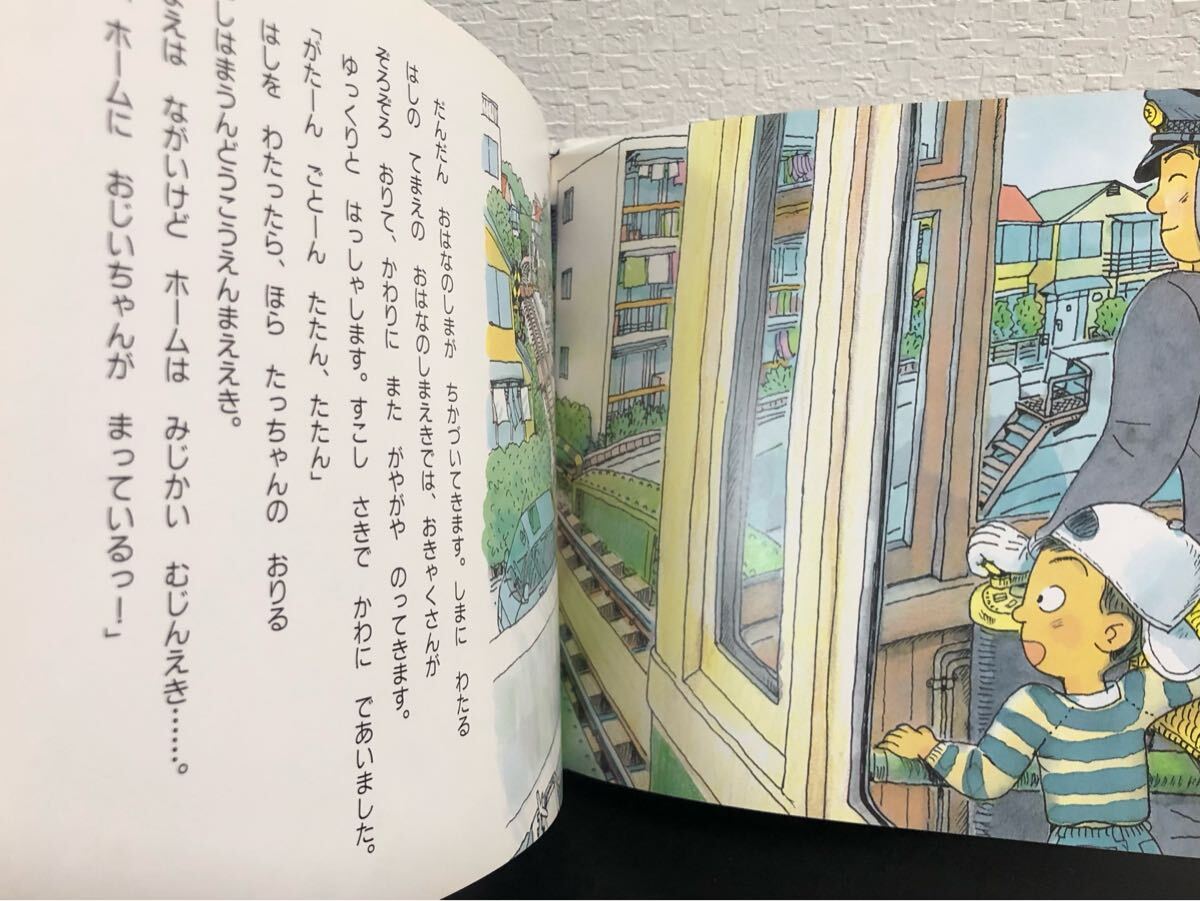 だんだん おはなのしまが ちかづいてきます。しまに わたる
はしの てまえの おはなのしまえきでは、おきゃくさんが
ぞろぞろ おりて、かわりに また がやがや のってきます。
ゆっくりと はっしゃします。すこし さきで かわに であいました。
「がたーん ごとーん たたん、たたん」
はしを わたったら、ほら たっちゃんの おりる
しはまうんどうこうえんまええき。
まえは ながいけど ホームは みじかい むじんえき……。
ホームに おじいちゃんが まっているっー」